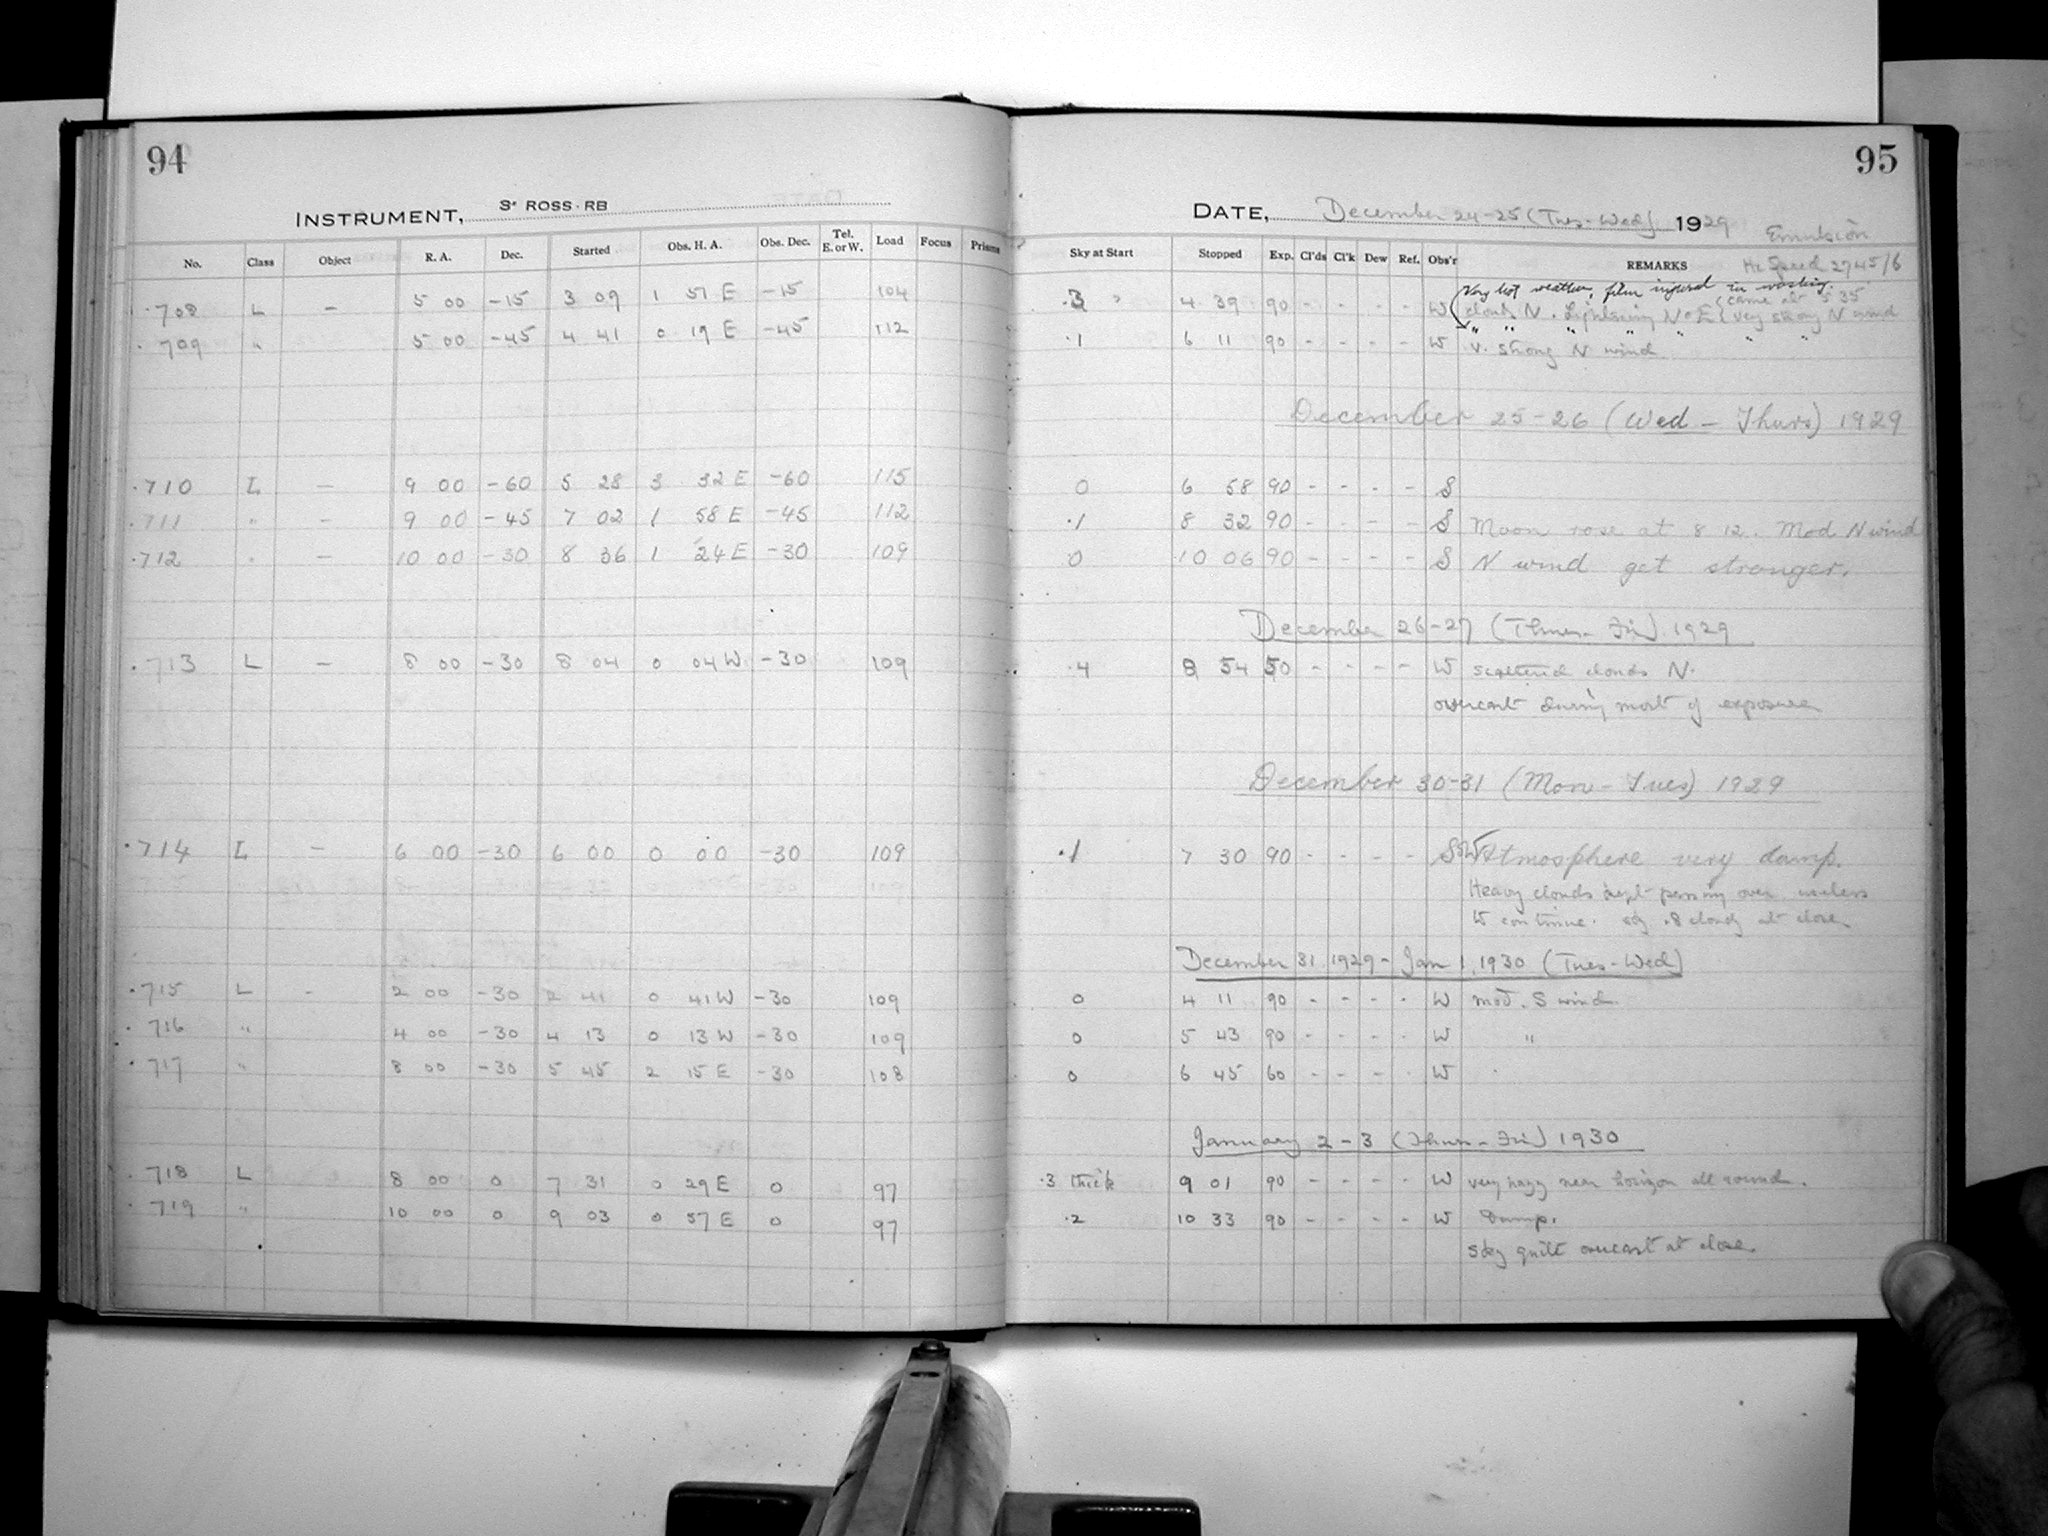 94
INSTRUMENT, Sʳ ROSS·RB
No. Class Object R. A. Dec. Started Obs. H. A. Obs. Dec. Tel. E. or W. Load Focus Prisms
·708 L – 5 00 -15 3 09 1 51 E -15 104
·709 " 5 00 -45 4 41 0 19 E -45 112
·710 L – 9 00 -60 5 28 3 32 E -60 115
·711 " – 9 00 -45 7 02 1 58 E -45 112
·712 " – 10 00 -30 8 36 1 24 E -30 109
·713 L – 8 00 -30 8 04 0 04 W -30 109
·714 L – 6 00 -30 6 00 0 00 -30 109
·715 L – 2 00 -30 2 41 0 41 W -30 109
·716 " 4 00 -30 4 13 0 13 W -30 109
·717 " 8 00 -30 5 45 2 15 E -30 108
·718 L 8 00 0 7 31 0 29 E 0 97
·719 " 10 00 0 9 03 0 57 E 0 97
95
DATE, December 24-25 (Tues-Wed) 1929
Emulsion
Sky at Start Stopped Exp. Cl'ds Cl'k Dew Ref. Obs'r REMARKS Hi Speed 2745/6
Very hot weather, film injured in washing.
came at 5 35
·3 4 39 90 - - - - W clouds N. Lightning N & E very strong N wind
" " " " " " "
·1 6 11 90 - - - - W v. strong N wind
December 25-26 (Wed – Thurs) 1929
0 6 58 90 - - - - S
·1 8 32 90 - - - - S Moon rose at 8 12. Mod N wind
0 10 06 90 - - - - S N wind get stronger.
December 26-27 (Thur-Fri) 1929
·4 8 54 50 - - - - W scattered clouds N.
overcast during most of exposure
December 30-31 (Mon-Tues) 1929
·1 7 30 90 - - - - S&W Atmosphere very damp.
Heavy clouds kept passing over. useless
to continue. sky .8 cloudy at close
December 31 1929 – Jan 1, 1930 (Tues-Wed)
0 4 11 90 - - - - W mod. S wind.
0 5 43 90 - - - - W "
0 6 45 60 - - - - W
January 2-3 (Thur-Fri) 1930
·3 thick 9 01 90 - - - - W very hazy near horizon all round.
·2 10 33 90 - - - - W Damp.
sky quite overcast at close.